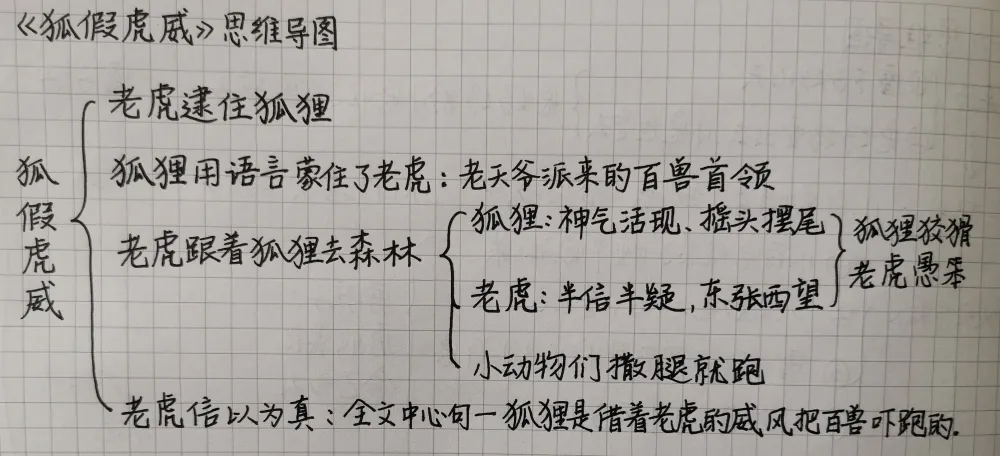 《狐假虎威》思维导图
狐假虎威
老虎逮住狐狸
狐狸用语言蒙住了老虎：老天爷派来的百兽首领
老虎跟着狐狸去森林
狐狸：神气活现、摇头摆尾
老虎：半信半疑，东张西望
狐狸狡猾
老虎愚笨
小动物们撒腿就跑
老虎信以为真：全文中心句—狐狸是借着老虎的威风把百兽吓跑的.